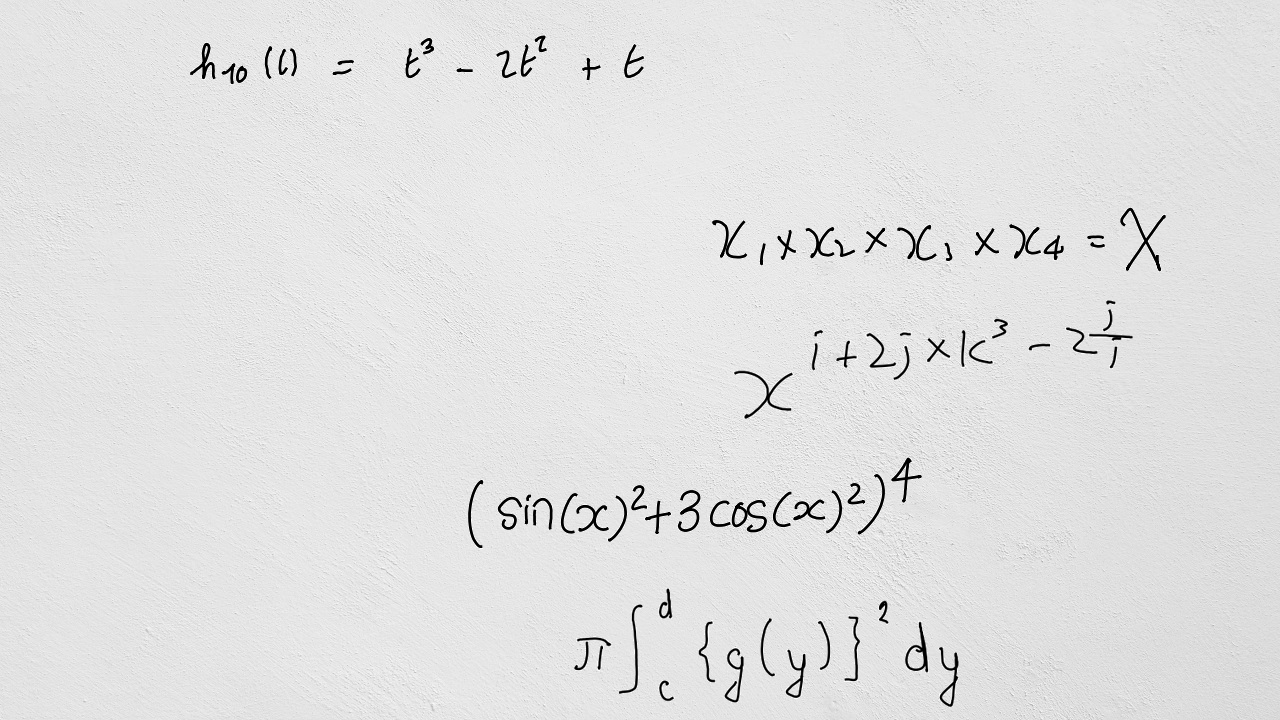 h₁₀(t) = t³ - 2t² + t
x₁ × x₂ × x₃ × x₄ = X
x^{i+2j×k³-2\frac{j}{i}}
(sin(x)²+3cos(x)²)⁴
π∫_c^d {g(y)}² dy